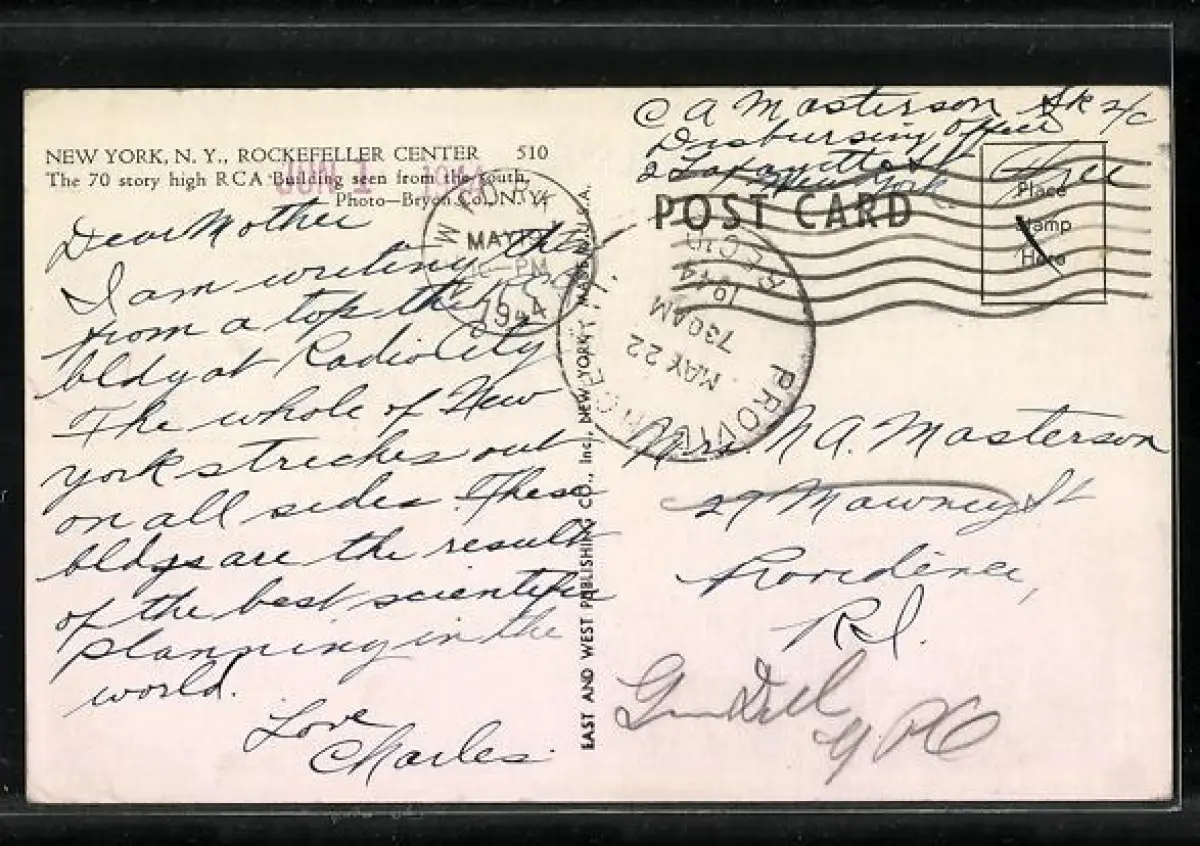 NEW YORK, N. Y., ROCKEFELLER CENTER 510
The 70 story high RCA Building seen from the South.
Photo—Bryon Co., N.Y.
JUN 1
Dear Mother
I am writing this
from a top the RCA
bldg at Radio City
The whole of New
york streches out
on all sides. These
bldgs are the result
of the best scientific
planning in the
world.
Love
Charles
MAY
PM
1944
EAST AND WEST PUBLISHING CO., Inc., NEW YORK 7, MADE IN U.S.A.
C A Masterson Sk 2/c
Disbursing Office
2 Lafayette St
New York
Free
POST CARD
Place
Stamp
Here
REC'D
1944
730AM
MAY 22
PROVIDENCE
Mrs. N A. Masterson
29 Mawney St
Providence,
R I.